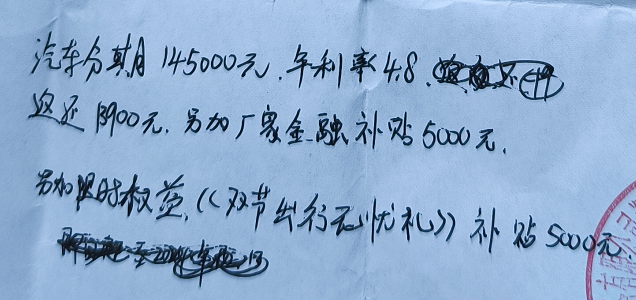 汽车分期145000元.年利率4.8.
返还13900元.另加厂家金融补贴5000元.
另加限时权益.《双节出行元忧礼》补贴5000元